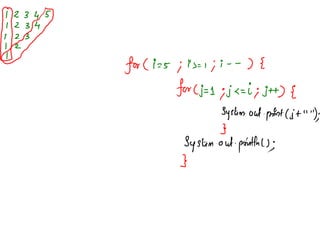 1 2 3 4 5
1 2 3 4
1 2 3
1 2
1
for( i=5 ; i>=1 ; i-- ) {
for(j=1 ; j<=i ; j++) {
System out.print(j+" ");
}
System out.println();
}